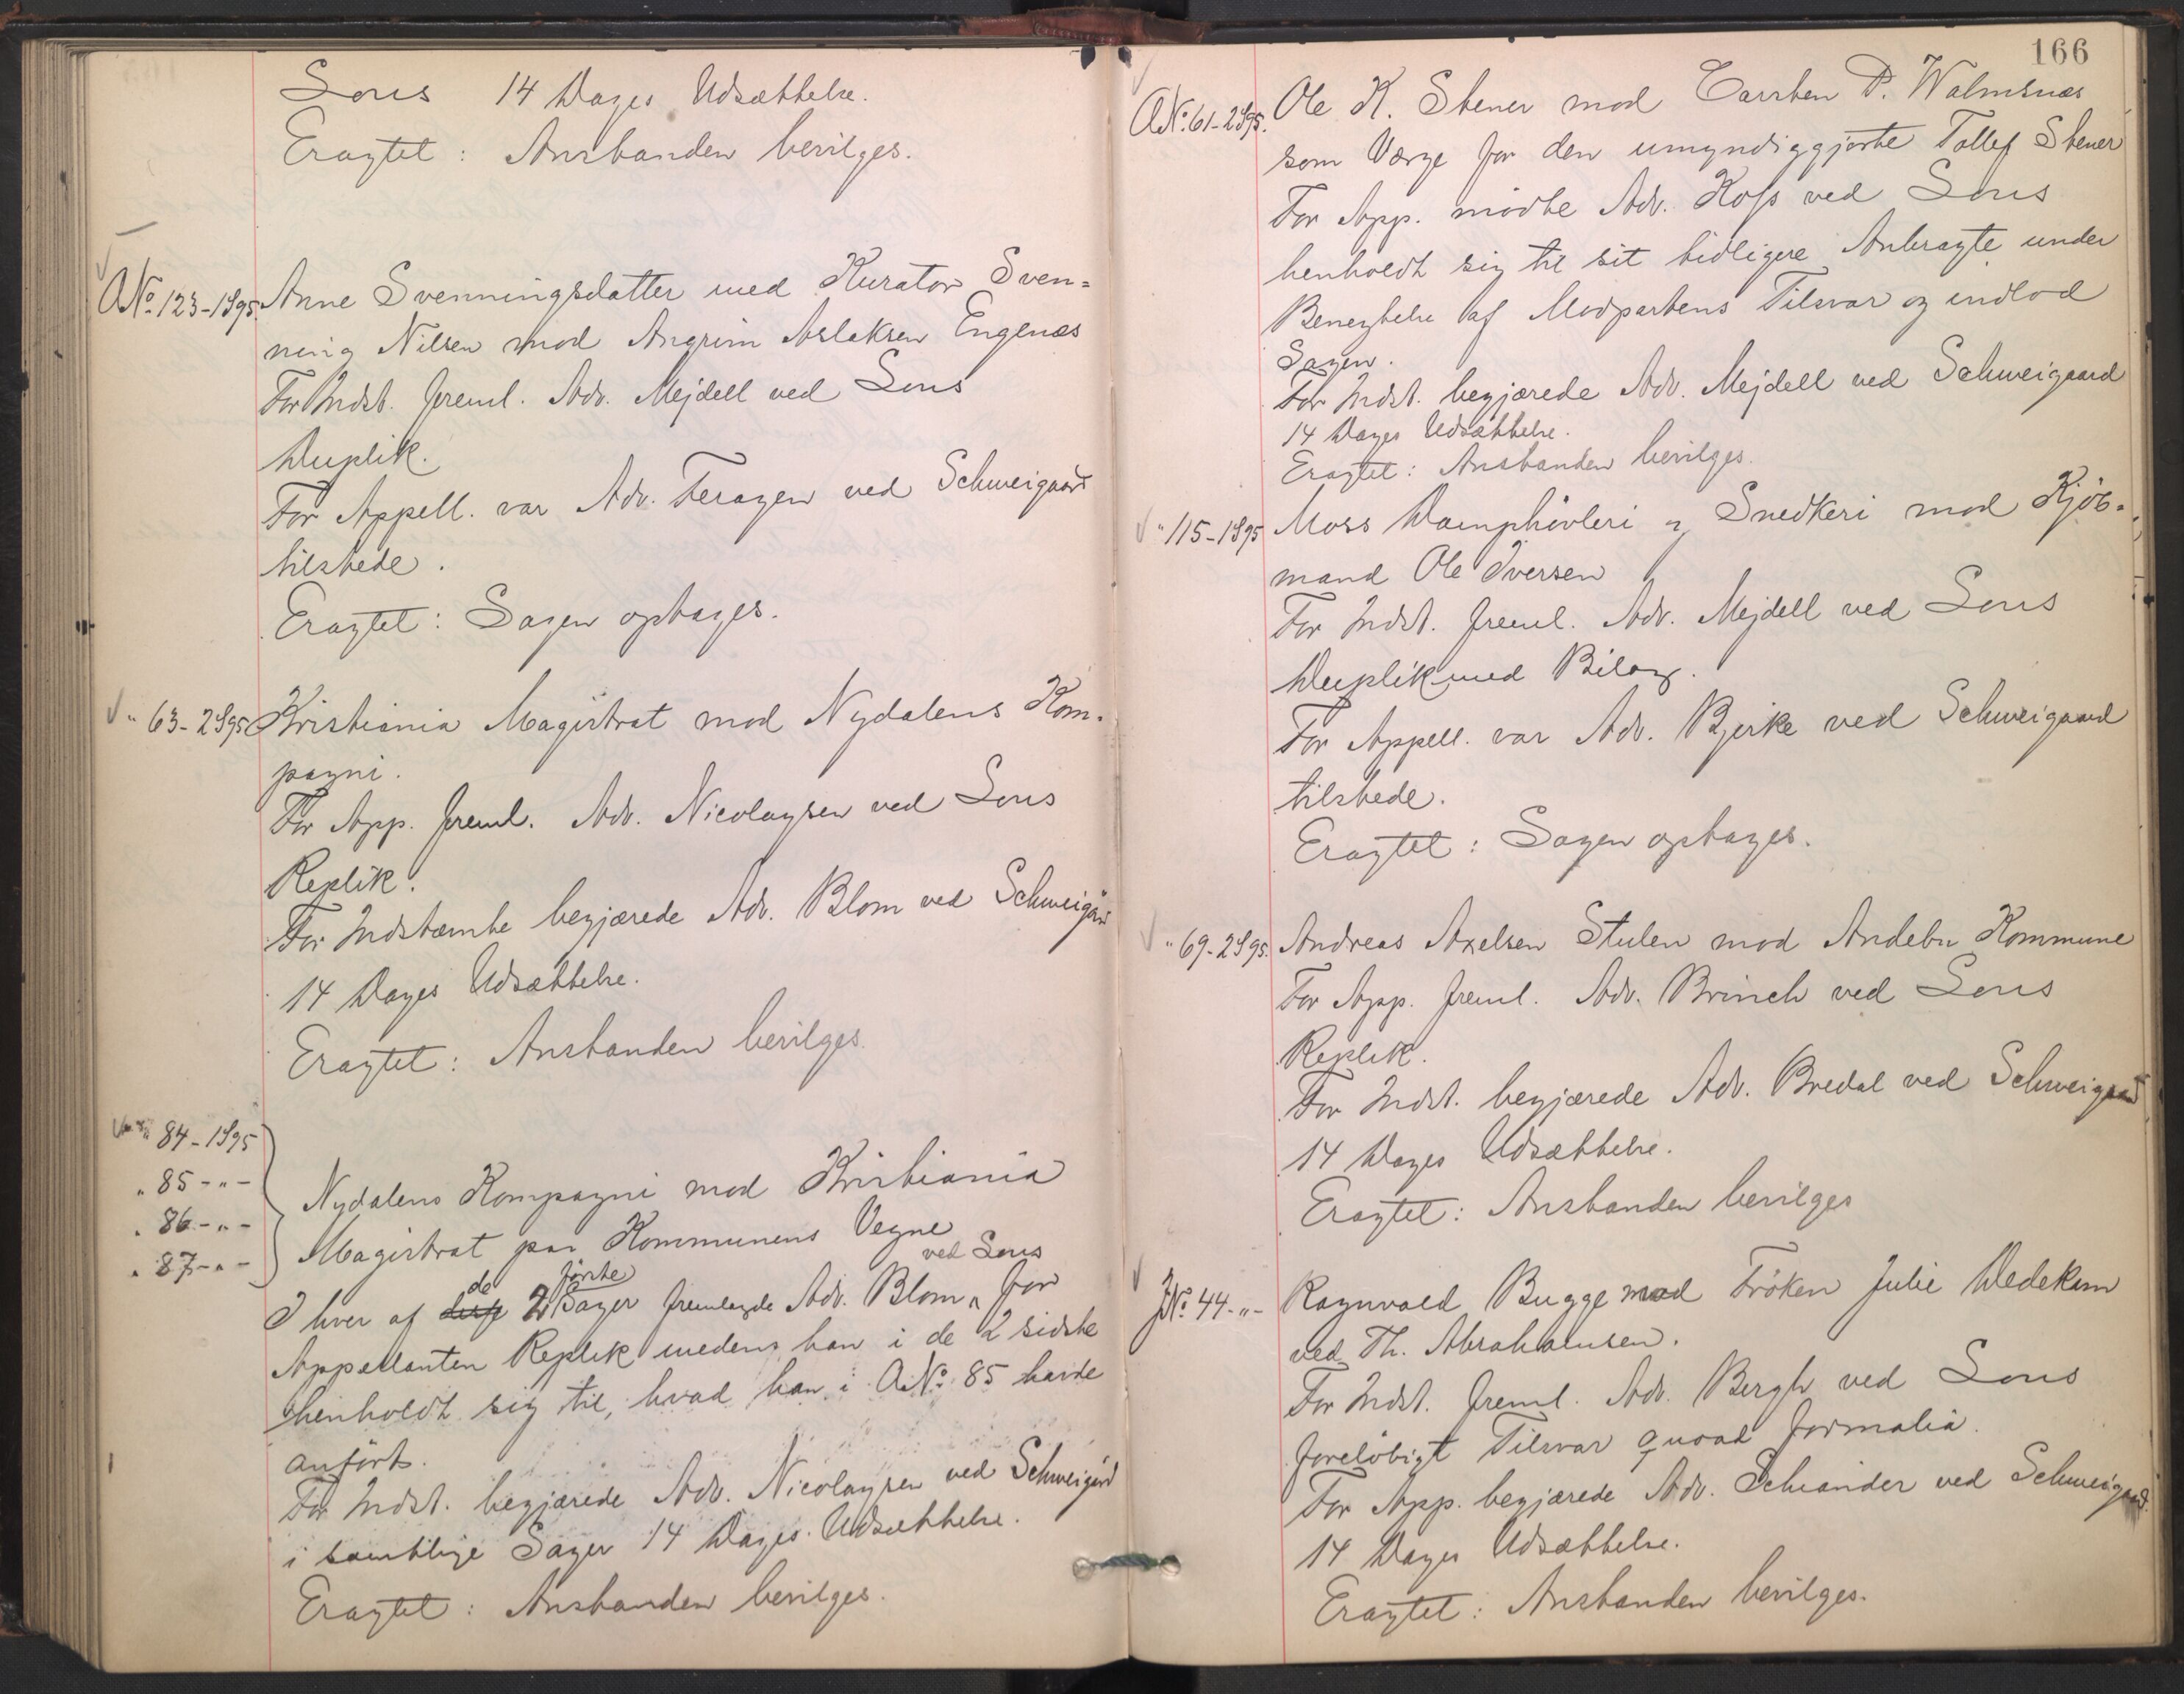 Sous 14 Dages Udsættelse.
Eragtet: Anstanden bevilges.
ANo. 123-1S95. Anne Svenningsdatter med Kurator Sven=
ning Nilsen mod Angrim Aslaksen Engenæs
For Indst. freml. Adv. Mejdell ved Sous
Duplik.
For Appell. var Adv. Feragen ved Schweigaard
tilstede.
Eragtet: Sagen optages.
" 63-2S95 Kristiania Magistrat mod Nydalens Kom-
pagni.
For App. freml. Adv. Nicolaysen ved Sous
Replik.
For Indstæmte begjærede Adv. Blom ved Schweigård
14 Dages Udsættelse.
Eragtet: Anstanden bevilges.
" 84-1S95
" 85-"-
" 86-"-
" 87-"-
Nydalens Kompagni mod Kristiania
Magistrat paa Kommunens Vegne
I hver af de 2 første Sager fremlagde Adv. Blom ved Sous for
Appellanten Replik medens han i de 2 sidste
henholdt sig til, hvad han i ANo. 85 havde
anført.
For Indst. begjærede Adv. Nicolaysen ved Schweigård
i samtlige Sager 14 Dages Udsættelse.
Eragtet: Anstanden bevilges.
166
ANo. 61-2S95. Ole K. Stener mod Carsten P. Walmsnæs
som Værge for den umyndiggjorte Tollef Stener
For App. mødte Adv. Hoff ved Sous
henholdt sig til sit tidligere Anbragte under
Benegtelse af Modpartens Tilsvar og indlod
Sagen.
For Indst. begjærede Adv. Mejdell ved Schweigaard
14 Dages Udsættelse.
Eragtet: Anstanden bevilges.
" 115-1S95 Moss Damphøvleri og Snedkeri mod Kjøb-
mand Ole Iversen
For Indst. freml. Adv. Mejdell ved Sous
Duplik med Bilag.
For Appell. var Adv. Bjerke ved Schweigaard
tilstede.
Eragtet: Sagen optages.
" 69-2S95. Andreas Axelsen Stulen mod Andebu Kommune
For App. freml. Adv. Brinch ved Sous
Replik.
For Indst. begjærede Adv. Bredal ved Schweigaard
14 Dages Udsættelse.
Eragtet: Anstanden bevilges
No. 44-"- Ragnvald Bugge mod Frøken Julie Wedekam
ved Th. Abrahamsen.
For Indst. freml. Adv. Bergh ved Sous
foreløbigt Tilsvar quoad formalia.
For App. begjærede Adv. Schiander ved Schweigaard
14 Dages Udsættelse.
Eragtet: Anstanden bevilges.